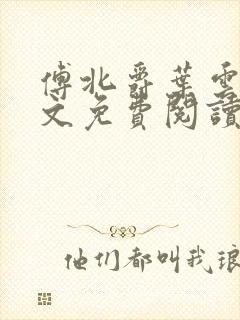 傅北爵葉雲
文免費閱讀
他们都叫我琅